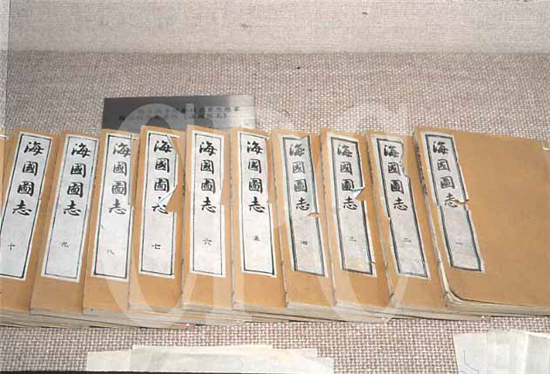 海國圖志 一
海國圖志 二
海國圖志 三
海國圖志 四
海國圖志 五
海國圖志 六
海國圖志 七
海國圖志 八
海國圖志 九
海國圖志 十